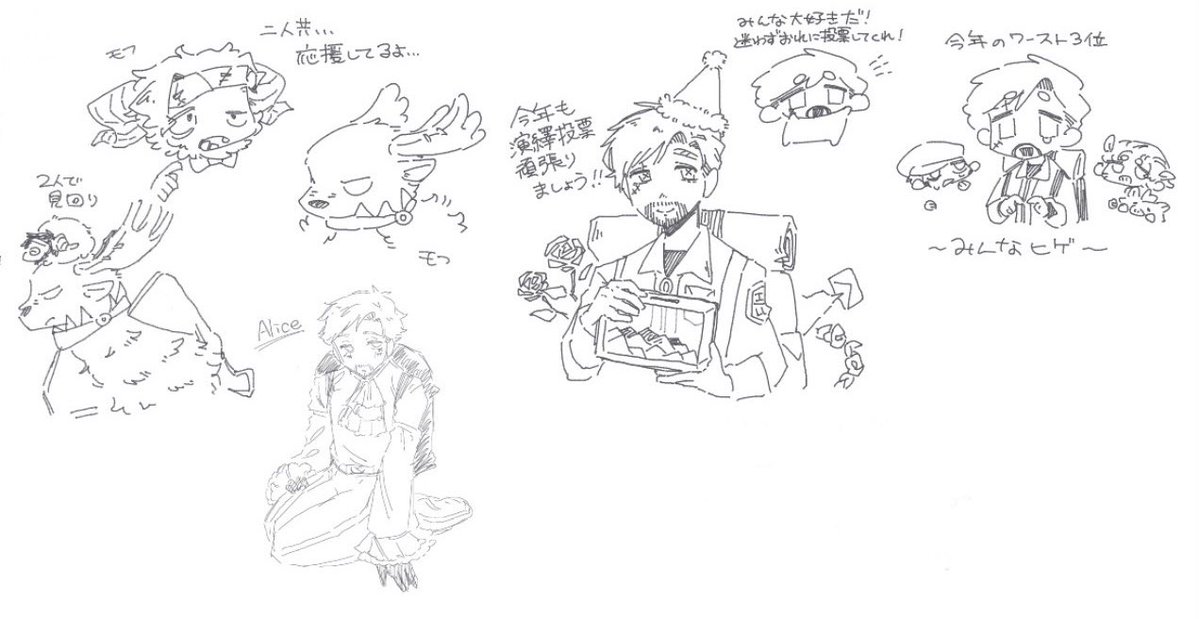 モフ
二人共...
応援してるよ...
2人で
見回り
モフ
Alice
今年も
演繹投票
頑張り
ましょう!!
みんな大好きだ!
迷わずおれに投票してくれ!
今年のワースト3位
～みんなヒゲ～